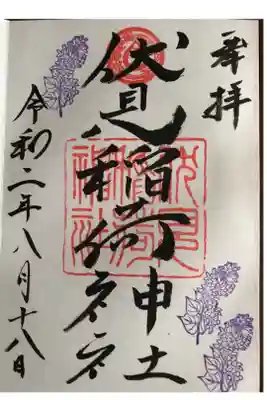 奉拝
伏見稲荷神社
令和二年八月十八日